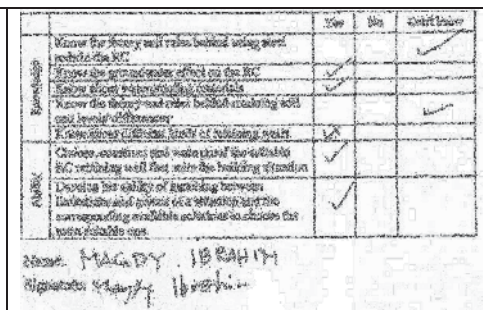 Yes No Don't know
Knowledge
Know the theory and rules behind using steel
inside the RC
Know the groundwater effect on the RC
Know about waterproofing materials
Know the theory and rules behind retaining soil
and levels differences
Know about different kinds of retaining walls
RC retaining wall that suits the building situation
Develop the ability of matching between
corresponding available solutions to choose the
most suitable one
Name: MAGDY IBRAHIM
Signature: Magdy Ibrahim